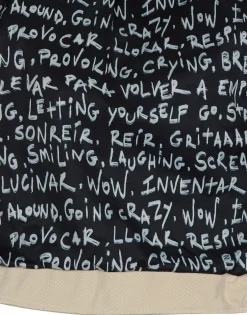 AROUND, GOING CRAZY, WOW, I
PROVOCAR, LLORAR, RESPIR
NG, PROVOKING, CRYING, BRE
LEVAR PARA VOLVER A EMP
NG, LETTING YOURSELF GO, ST
, SONREIR, REIR, GRITAAA
NG, SMILING, LAUGHING, SCREA
LUCINAR, WOW, INVENTAR
AROUND, GOING CRAZY, WOW, I
PROVOCAR, LLORAR, RESPIR
NG, PROVOKING, CRYING, BRE